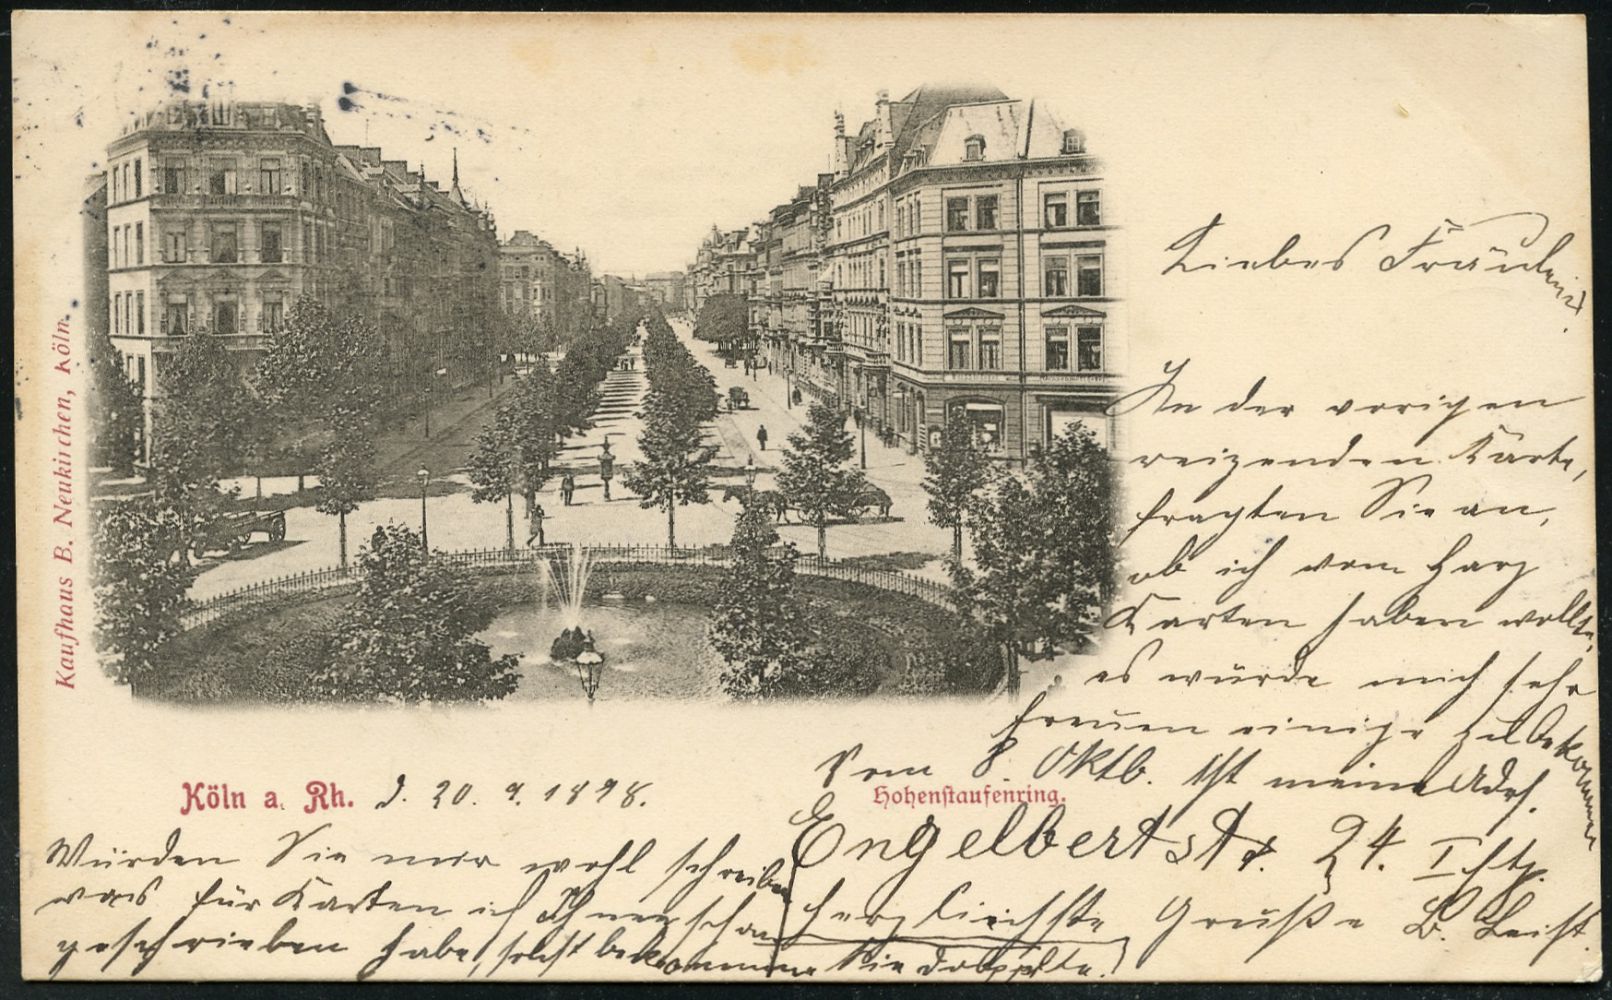 Kaufhaus B. Neukirchen, Köln.
Liebes Fräulein!
In der vorigen
reizenden Karte,
fragten Sie an,
ob ich vom Harz
Karten haben wollte,
es würde mich sehr
freuen einige zu bekommen
Vom 8. Oktb. ist meine Adrs.
Engelbertstr. 24. I Etg.
herzlichste Grüße B. Leist.
Köln a. Rh. d. 20. 9. 1898.
Hohenstaufenring.
Würden Sie mir wohl schreiben
was für Karten ich Ihnen schon
geschrieben habe, sonst bekommen Sie doppelte.